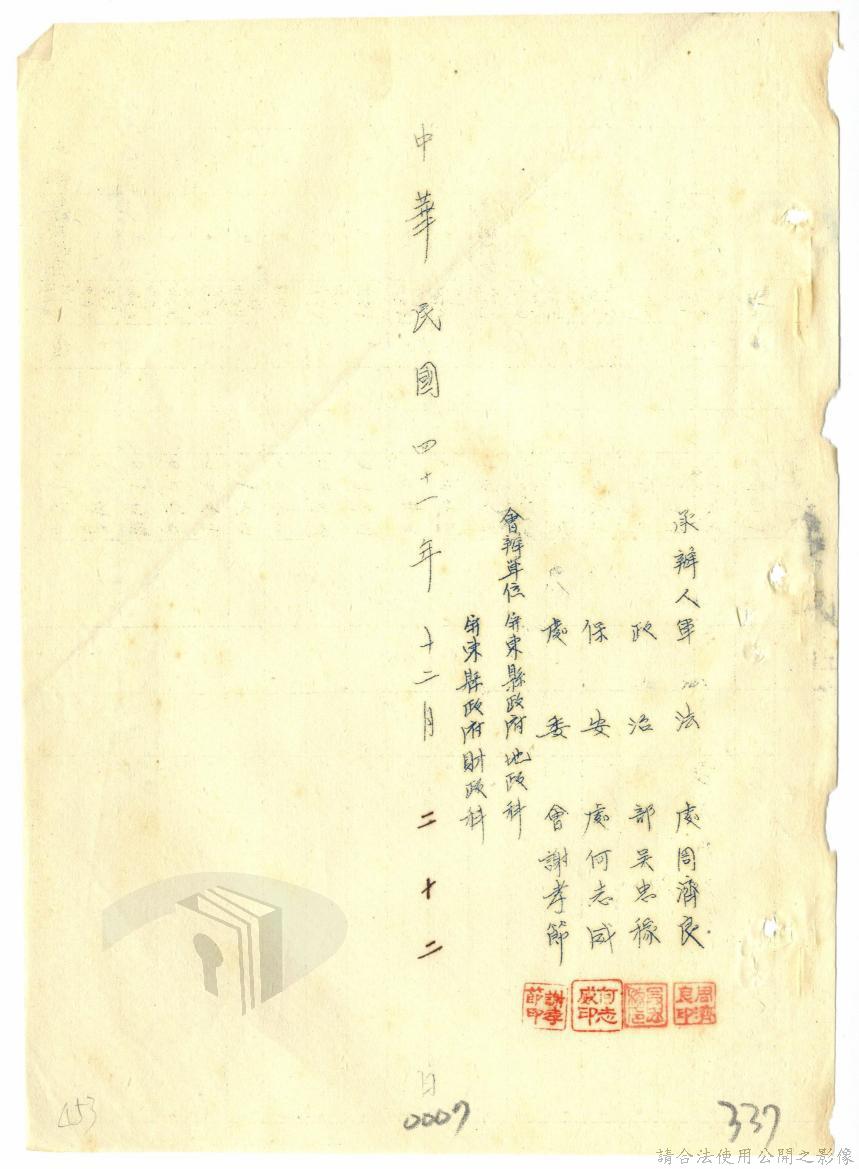 承辦人軍法處周濟良
政治部吳忠稼
保安處何志威
處委會謝孝節
會辦單位屏東縣政府地政科
屏東縣政府財政科
中華民國四十一年十二月二十二日
周濟良印
何志威印
謝孝節印
453
0007
337
請合法使用公開之影像